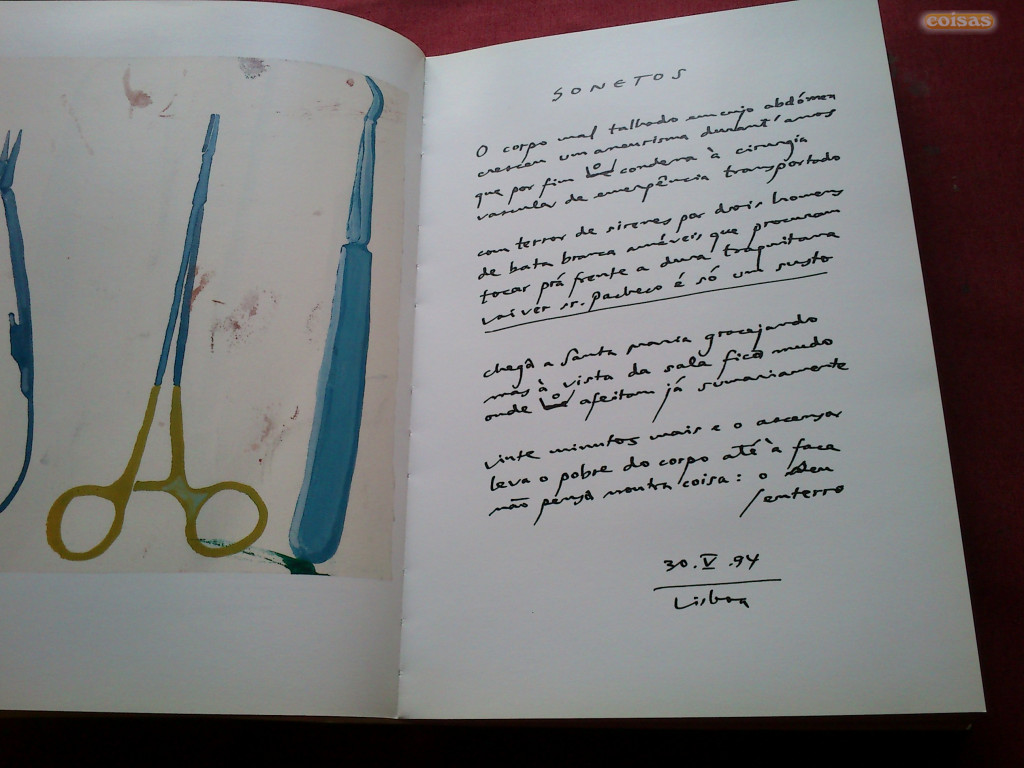 coisas
SONETOS
O corpo mal talhado em cujo abdómen
cresceu um aneurisma durant'anos
que por fim o condena à cirurgia
vascular de emergência transportado
com terror de sirenes por dois homens
de bata branca amáveis que procuram
tocar prá frente a dura traquitana
vai ver sr. pacheco é só um susto
chega a Santa marta gracejando
mas à vista da sala fica mudo
onde o afeitam já sumariamente
vinte minutos mais e o ascensor
leva o pobre do corpo até à faca
não pensa noutra coisa: o seu
/enterro
30.V.94
Lisboa